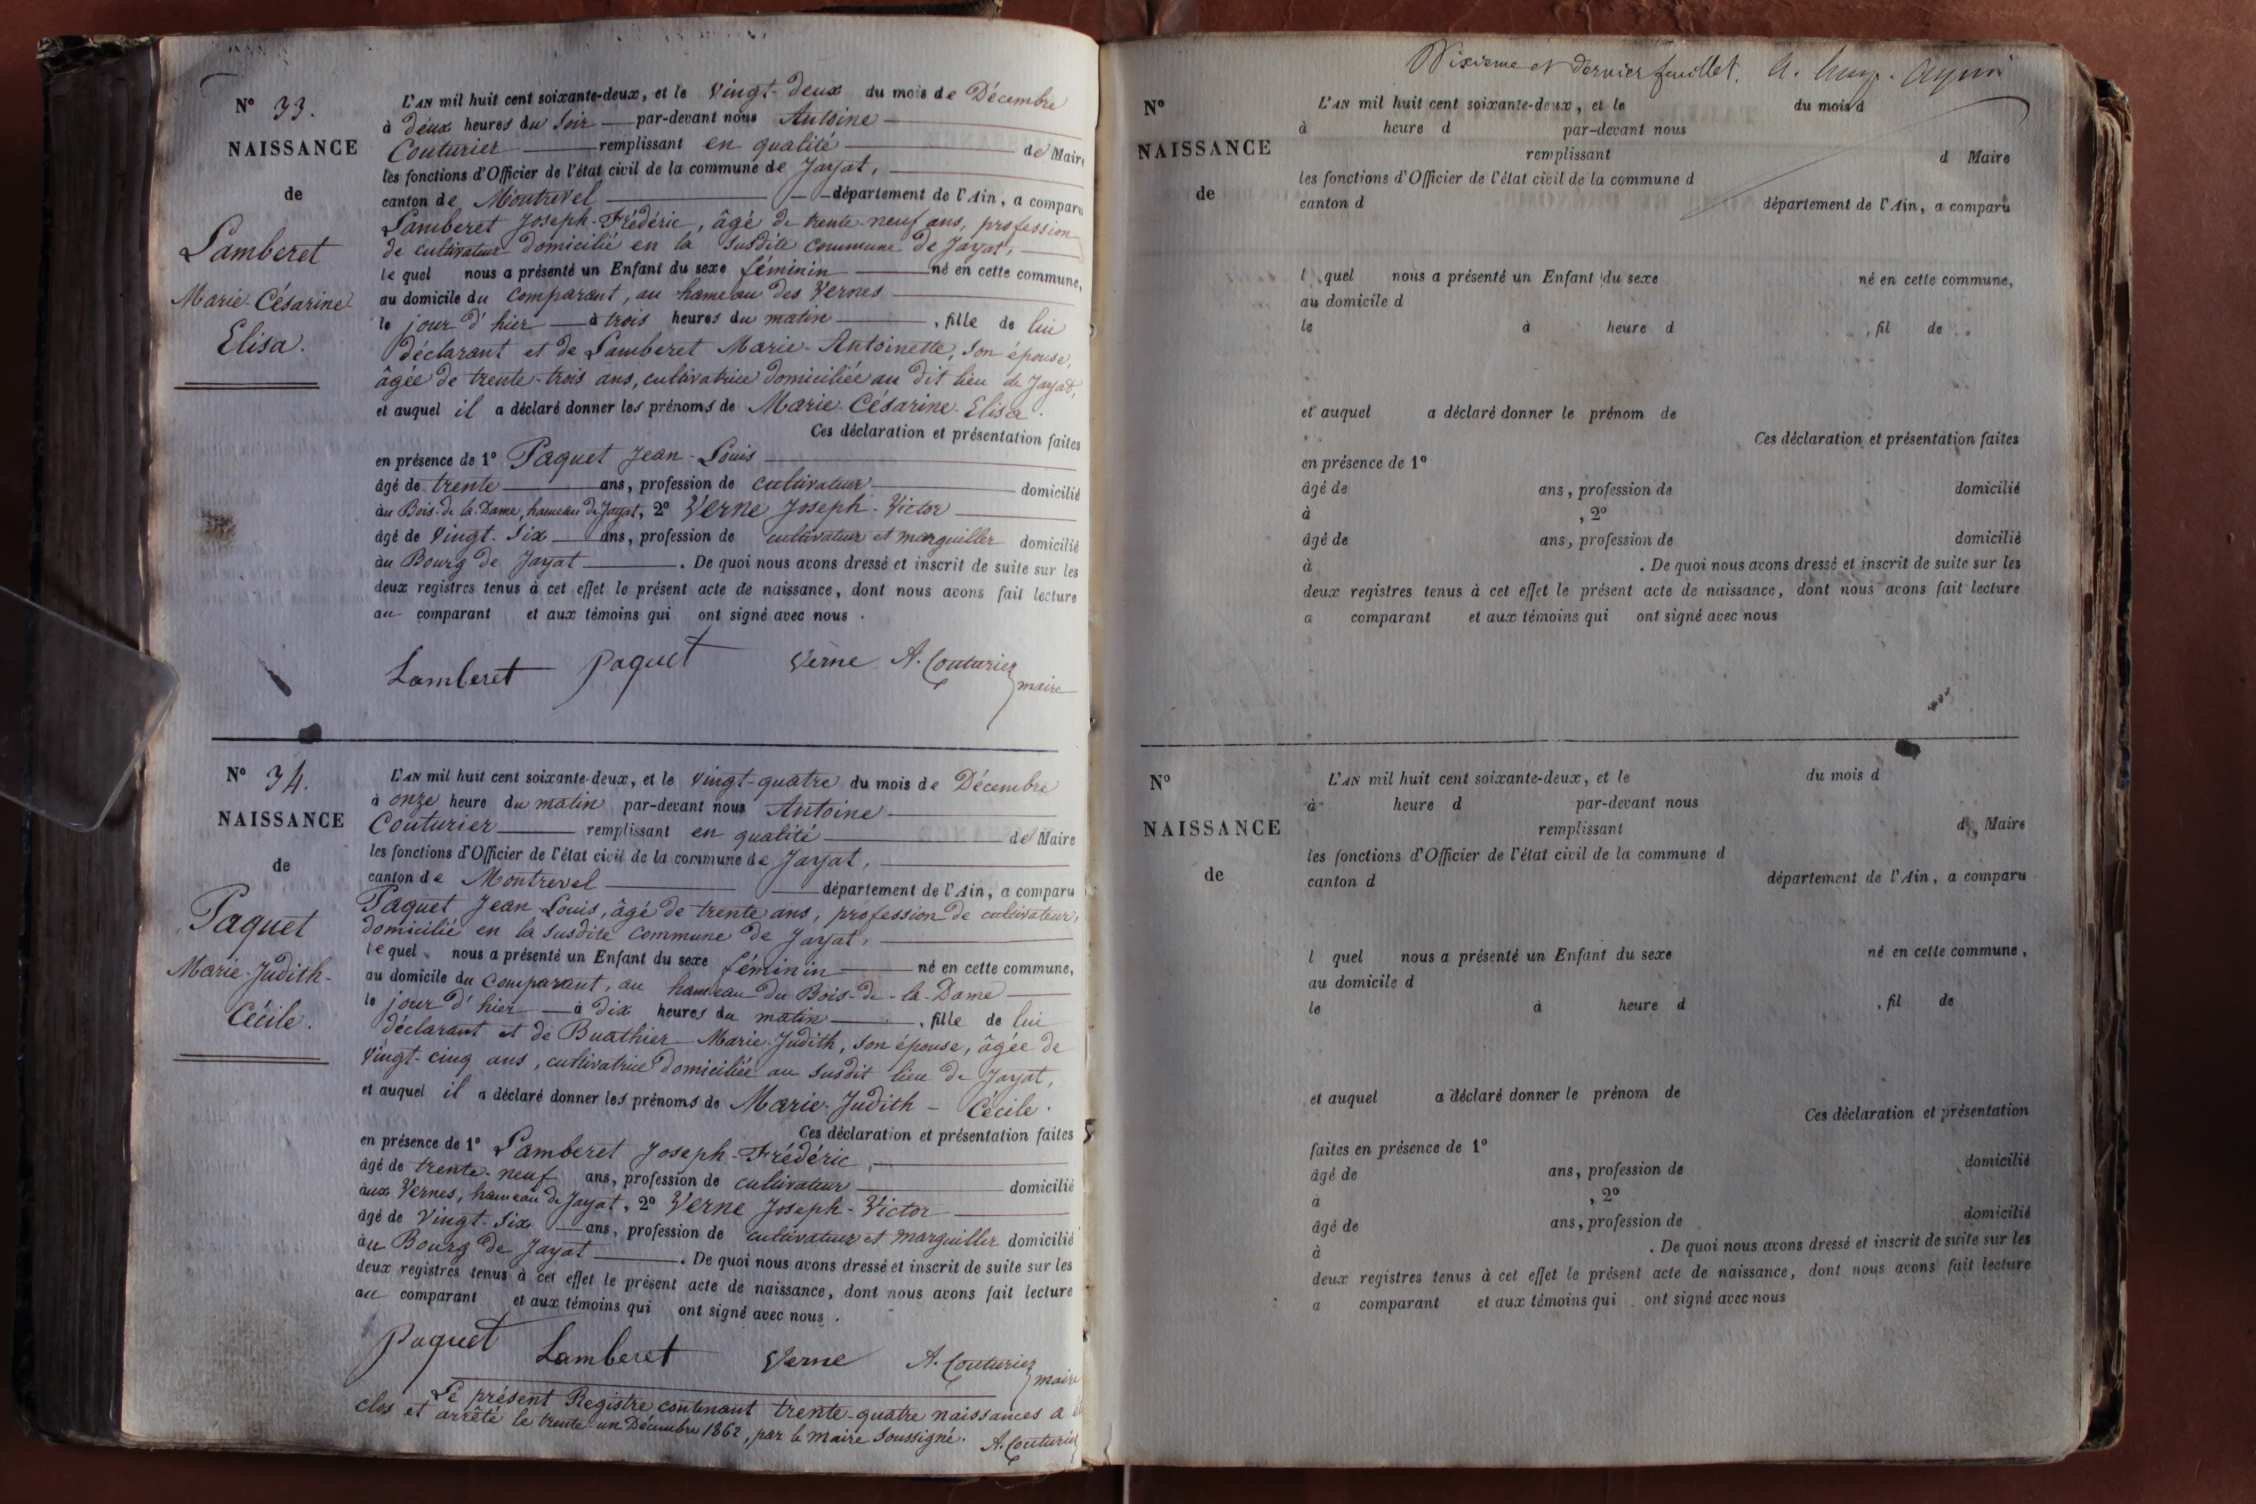 N° 33.
NAISSANCE
de
Lamberet
Marie-Césarine
Elisa.
L'AN mil huit cent soixante-deux, et le vingt-deux du mois de Décembre
à deux heures du soir par-devant nous Antoine
Couturier remplissant en qualité de Maire
les fonctions d'Officier de l'état civil de la commune de Jayat,
canton de Montrevel département de l'Ain, a comparu
Lamberet Joseph-Frédéric, âgé de trente-neuf ans, profession
de cultivateur domicilié en la susdite commune de Jayat,
lequel nous a présenté un Enfant du sexe féminin né en cette commune,
au domicile du comparant, au hameau des Vernes
le jour d'hier à trois heures du matin, fille de lui
déclarant et de Lamberet Marie-Antoinette, son épouse,
âgée de trente-trois ans, cultivatrice domiciliée au dit lieu de Jayat,
et auquel il a déclaré donner les prénoms de Marie-Césarine-Elisa.
Ces déclaration et présentation faites
en présence de 1° Paquet Jean-Louis
âgé de trente ans, profession de cultivateur domicilié
au Bois-de-la-Dame, hameau de Jayat, 2° Verne Joseph-Victor
âgé de vingt-six ans, profession de cultivateur et marguiller domicilié
au Bourg de Jayat. De quoi nous avons dressé et inscrit de suite sur les
deux registres tenus à cet effet le présent acte de naissance, dont nous avons fait lecture
au comparant et aux témoins qui ont signé avec nous.
Lamberet Paquet Verne A. Couturier
maire
N° 34.
NAISSANCE
de
Paquet
Marie-Judith-
Cécile.
L'AN mil huit cent soixante-deux, et le vingt-quatre du mois de Décembre
à onze heure du matin par-devant nous Antoine
Couturier remplissant en qualité de Maire
les fonctions d'Officier de l'état civil de la commune de Jayat,
canton de Montrevel département de l'Ain, a comparu
Paquet Jean-Louis, âgé de trente ans, profession de cultivateur,
domicilié en la susdite commune de Jayat,
lequel nous a présenté un Enfant du sexe féminin né en cette commune,
au domicile du comparant, au hameau du Bois-de-la-Dame
le jour d'hier à dix heures du matin, fille de lui
déclarant et de Buathier Marie-Judith, son épouse, âgée de
vingt-cinq ans, cultivatrice domiciliée au susdit lieu de Jayat,
et auquel il a déclaré donner les prénoms de Marie-Judith-Cécile.
Ces déclaration et présentation faites
en présence de 1° Lamberet Joseph-Frédéric,
âgé de trente-neuf ans, profession de cultivateur domicilié
aux Vernes, hameau de Jayat, 2° Verne Joseph-Victor
âgé de vingt-six ans, profession de cultivateur et marguiller domicilié
au Bourg de Jayat. De quoi nous avons dressé et inscrit de suite sur les
deux registres tenus à cet effet le présent acte de naissance, dont nous avons fait lecture
au comparant et aux témoins qui ont signé avec nous.
Paquet Lamberet Verne A. Couturier
maire
Le présent Registre contenant trente-quatre naissances a été
clos et arrêté le trente-un Décembre 1862, par le maire soussigné. A. Couturier
Dixième et dernier feuillet.
N°
NAISSANCE
de
L'AN mil huit cent soixante-deux, et le du mois d
à heure d par-devant nous
remplissant d Maire
les fonctions d'Officier de l'état civil de la commune d
canton d département de l'Ain, a comparu
l quel nous a présenté un Enfant du sexe né en cette commune,
au domicile d
le à heure d , fil de
et auquel a déclaré donner le prénom de
Ces déclaration et présentation faites
en présence de 1°
âgé de ans, profession de domicilié
à , 2°
âgé de ans, profession de domicilié
à . De quoi nous avons dressé et inscrit de suite sur les
deux registres tenus à cet effet le présent acte de naissance, dont nous avons fait lecture
a comparant et aux témoins qui ont signé avec nous
N°
NAISSANCE
de
L'AN mil huit cent soixante-deux, et le du mois d
à heure d par-devant nous
remplissant d Maire
les fonctions d'Officier de l'état civil de la commune d
canton d département de l'Ain, a comparu
l quel nous a présenté un Enfant du sexe né en cette commune,
au domicile d
le à heure d , fil de
et auquel a déclaré donner le prénom de
Ces déclaration et présentation
faites en présence de 1°
âgé de ans, profession de domicilié
à , 2°
âgé de ans, profession de domicilié
à . De quoi nous avons dressé et inscrit de suite sur les
deux registres tenus à cet effet le présent acte de naissance, dont nous avons fait lecture
a comparant et aux témoins qui ont signé avec nous